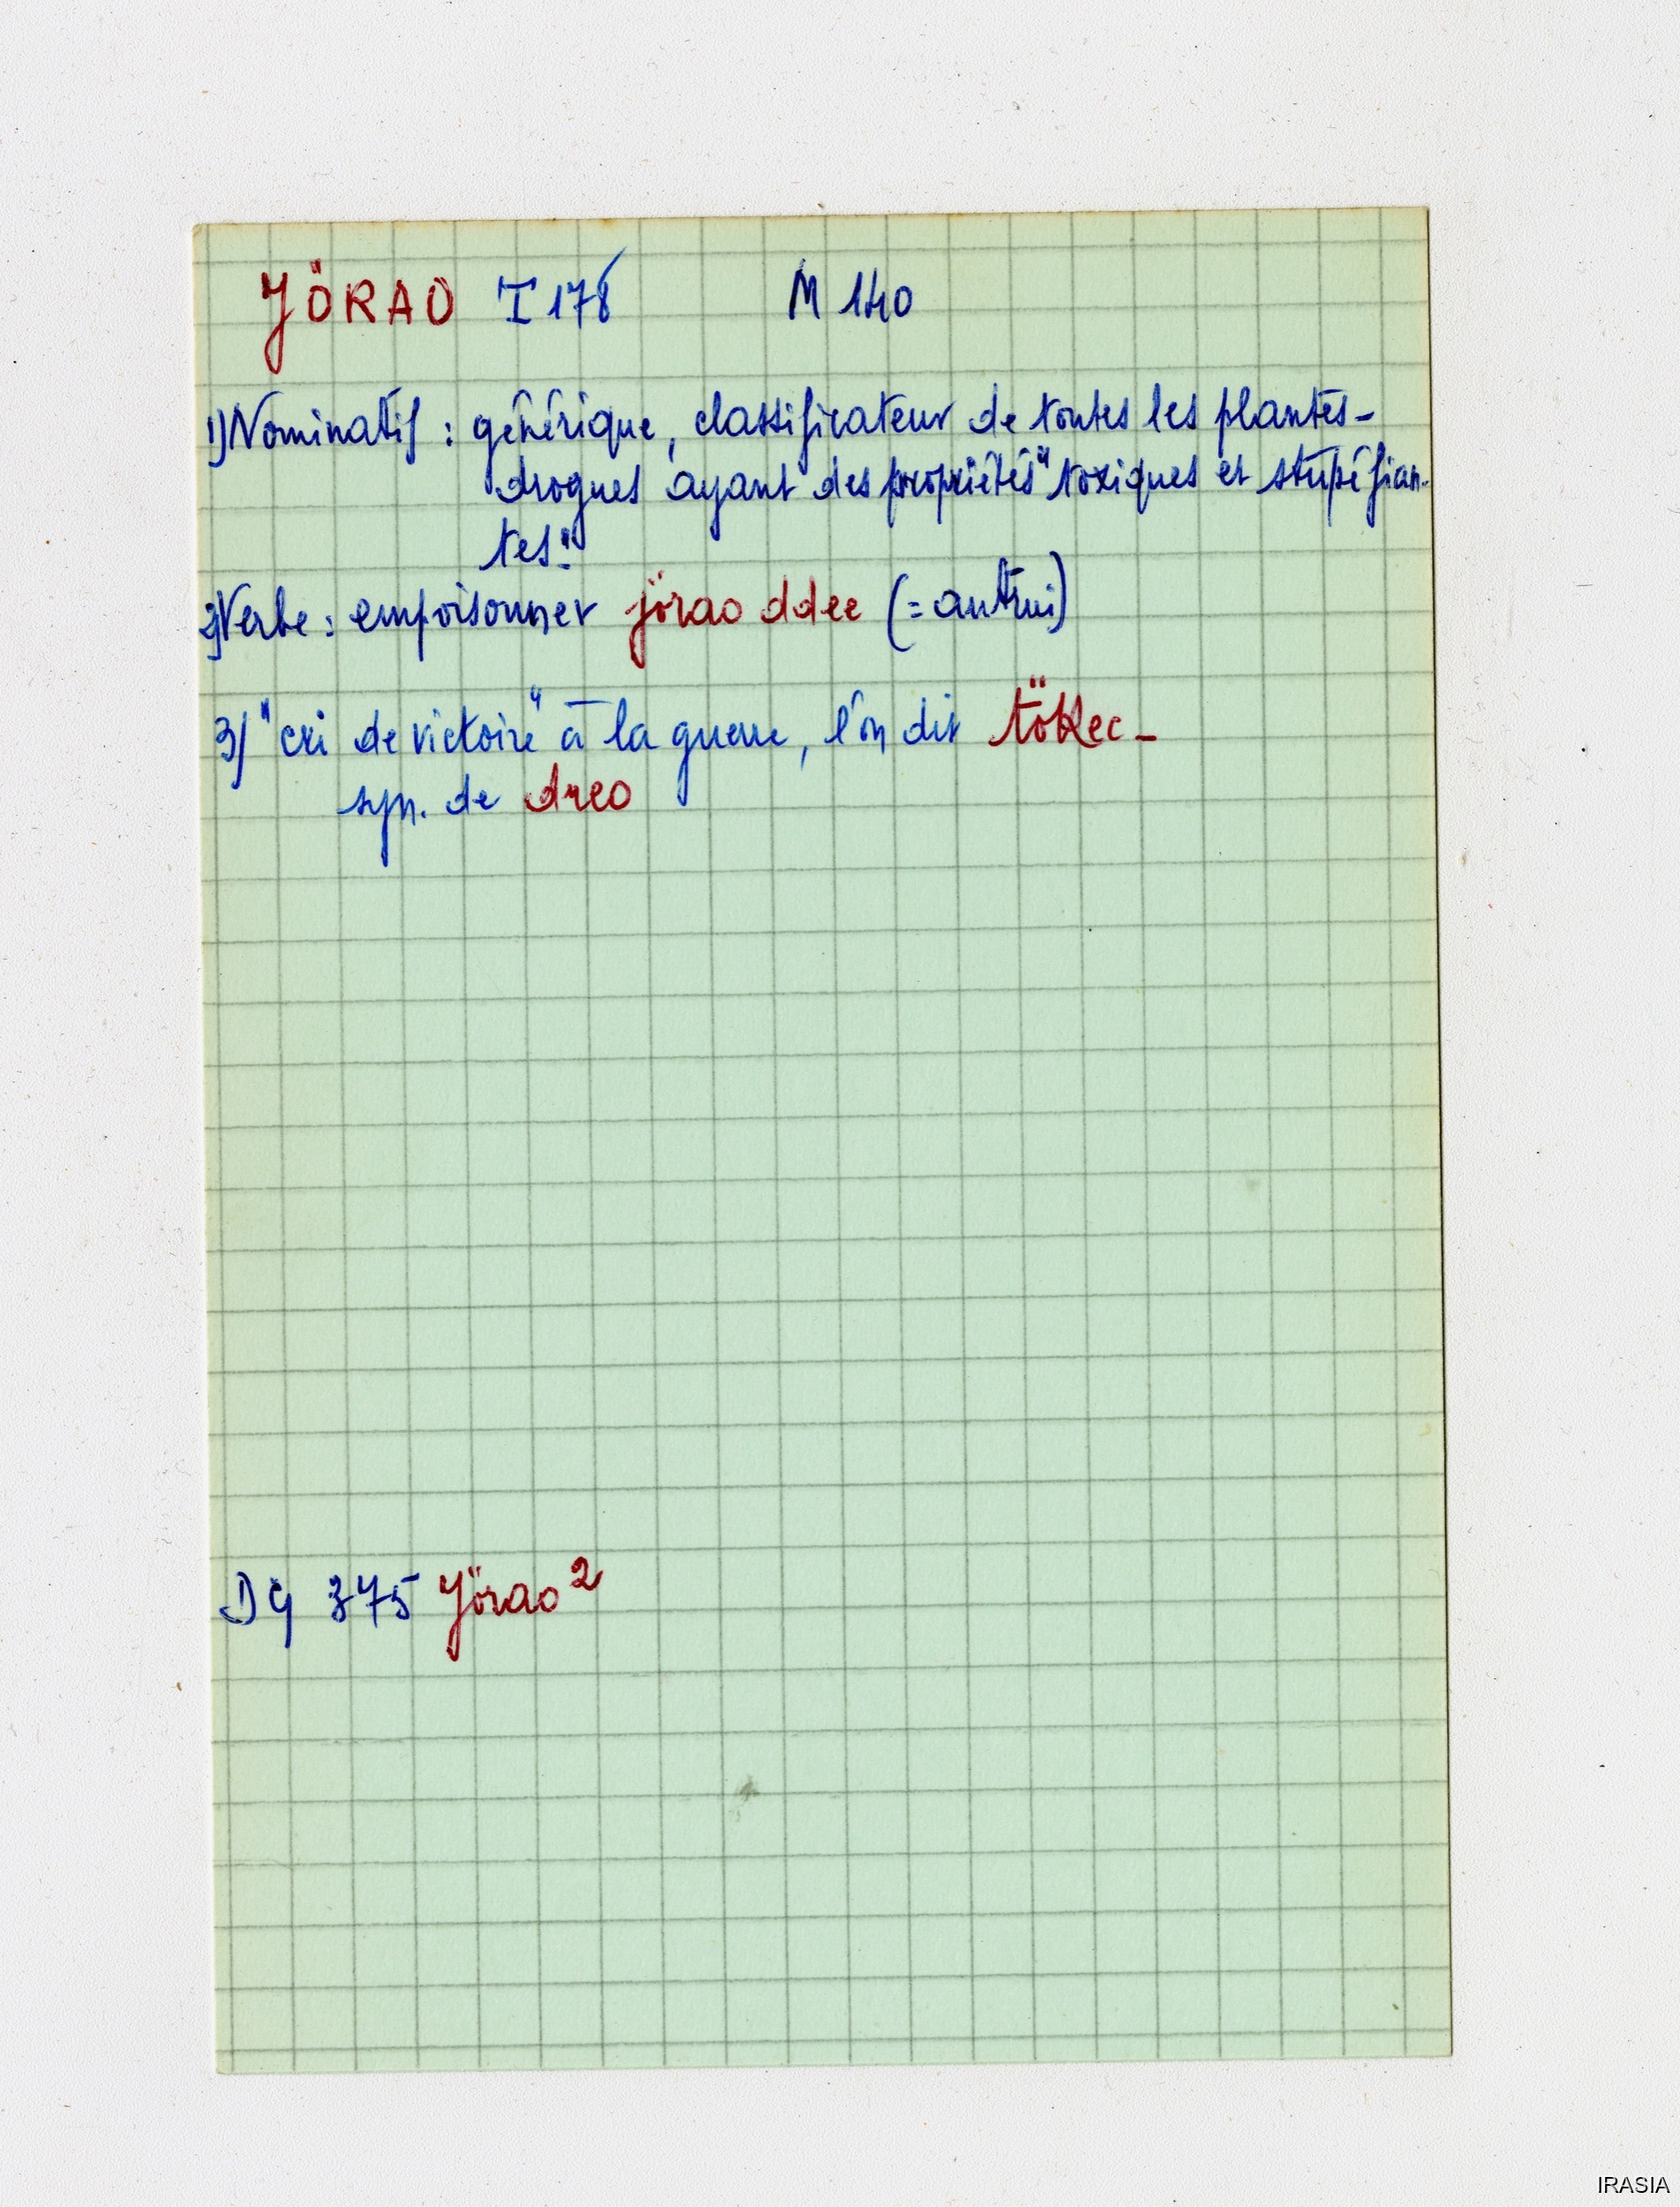 JÖRAO I 178 M 140
1) Nominatif : générique, classificateur de toutes les plantes-
drogues ayant des propriétés "toxiques et stupéfian-
tes".
2) Verbe : empoisonner jörao ddee (= autrui)
3) "cri de victoire" à la guerre, l'on dit tökec -
syn. de dreo
DG 375 Jörao 2
IRASIA